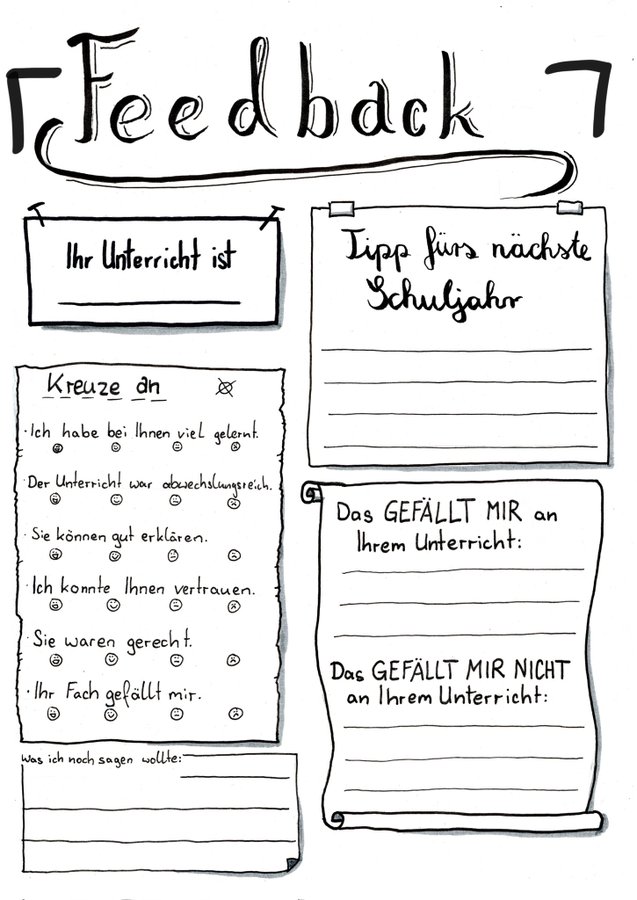 Feedback
Ihr Unterricht ist
Tipp fürs nächste
Schuljahr
Kreuze an
· Ich habe bei Ihnen viel gelernt.
· Der Unterricht war abwechslungsreich.
· Sie können gut erklären.
· Ich konnte Ihnen vertrauen.
· Sie waren gerecht.
· Ihr Fach gefällt mir.
Das GEFÄLLT MIR an
Ihrem Unterricht:
Das GEFÄLLT MIR NICHT
an Ihrem Unterricht:
Was ich noch sagen wollte: